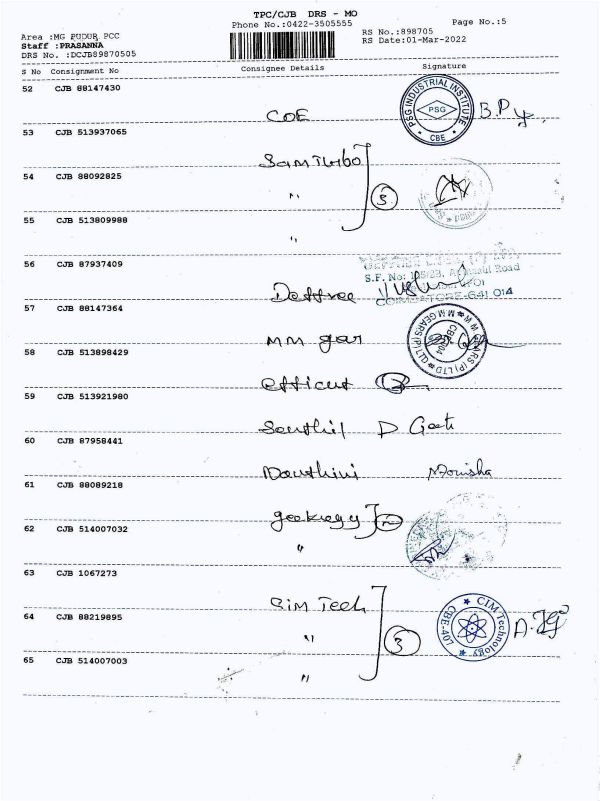 TPC/CJB DRS - MO
Phone No.:0422-3505555
Page No.:5
Area :MG PUDUR PCC
Staff :PRASANNA
DRS No. :DCJB89870505
RS No.:898705
RS Date:01-Mar-2022
S No Consignment No Consignee Details Signature
52 CJB 88147430
COE
PSG INDUSTRIAL INSTITUTE
PSG
* CBE *
53 CJB 513937065
Sam Turbo
54 CJB 88092825
"
3
55 CJB 513809988
"
56 CJB 87937409
S.F. No: Road
COIMBATORE-641 014
57 CJB 88147364
MM gear
M M GEARS (P) LTD
58 CJB 513898429
59 CJB 513921980
Senthil D
60 CJB 87958441
Monisha
61 CJB 88089218
62 CJB 514007032
"
63 CJB 1067273
Cim Tech
64 CJB 88219895
"
3
CIM Technology
CBE-407
65 CJB 514007003
"